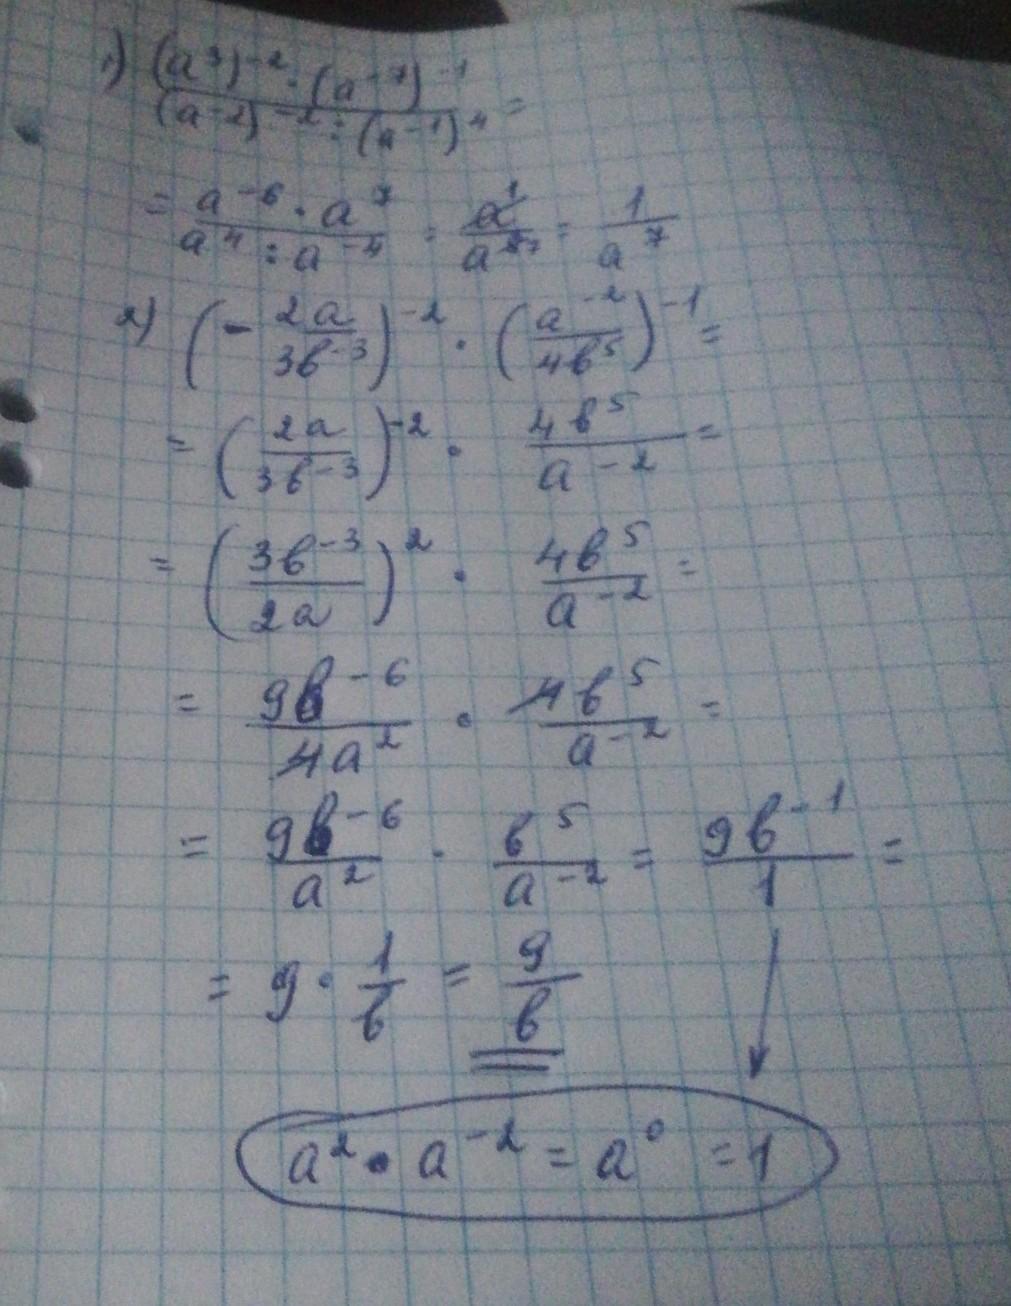 1) (a³)⁻² · (a⁻⁷)⁻¹ / (a⁻²)⁻² : (a⁻¹)⁴ =
= a⁻⁶ · a⁷ / a⁴ : a⁻⁴ = a¹ / a⁸⁷ = 1 / a⁷
2) (- 2a / 3b⁻³)⁻² · (a⁻² / 4b⁵)⁻¹ =
= (2a / 3b⁻³)⁻² · 4b⁵ / a⁻² =
= (3b⁻³ / 2a)² · 4b⁵ / a⁻² =
= 9b⁻⁶ / 4a² · 4b⁵ / a⁻² =
= 9b⁻⁶ / a² · b⁵ / a⁻² = 9b⁻¹ / 1 =
= 9 · 1 / b = 9 / b
a² · a⁻² = a⁰ = 1